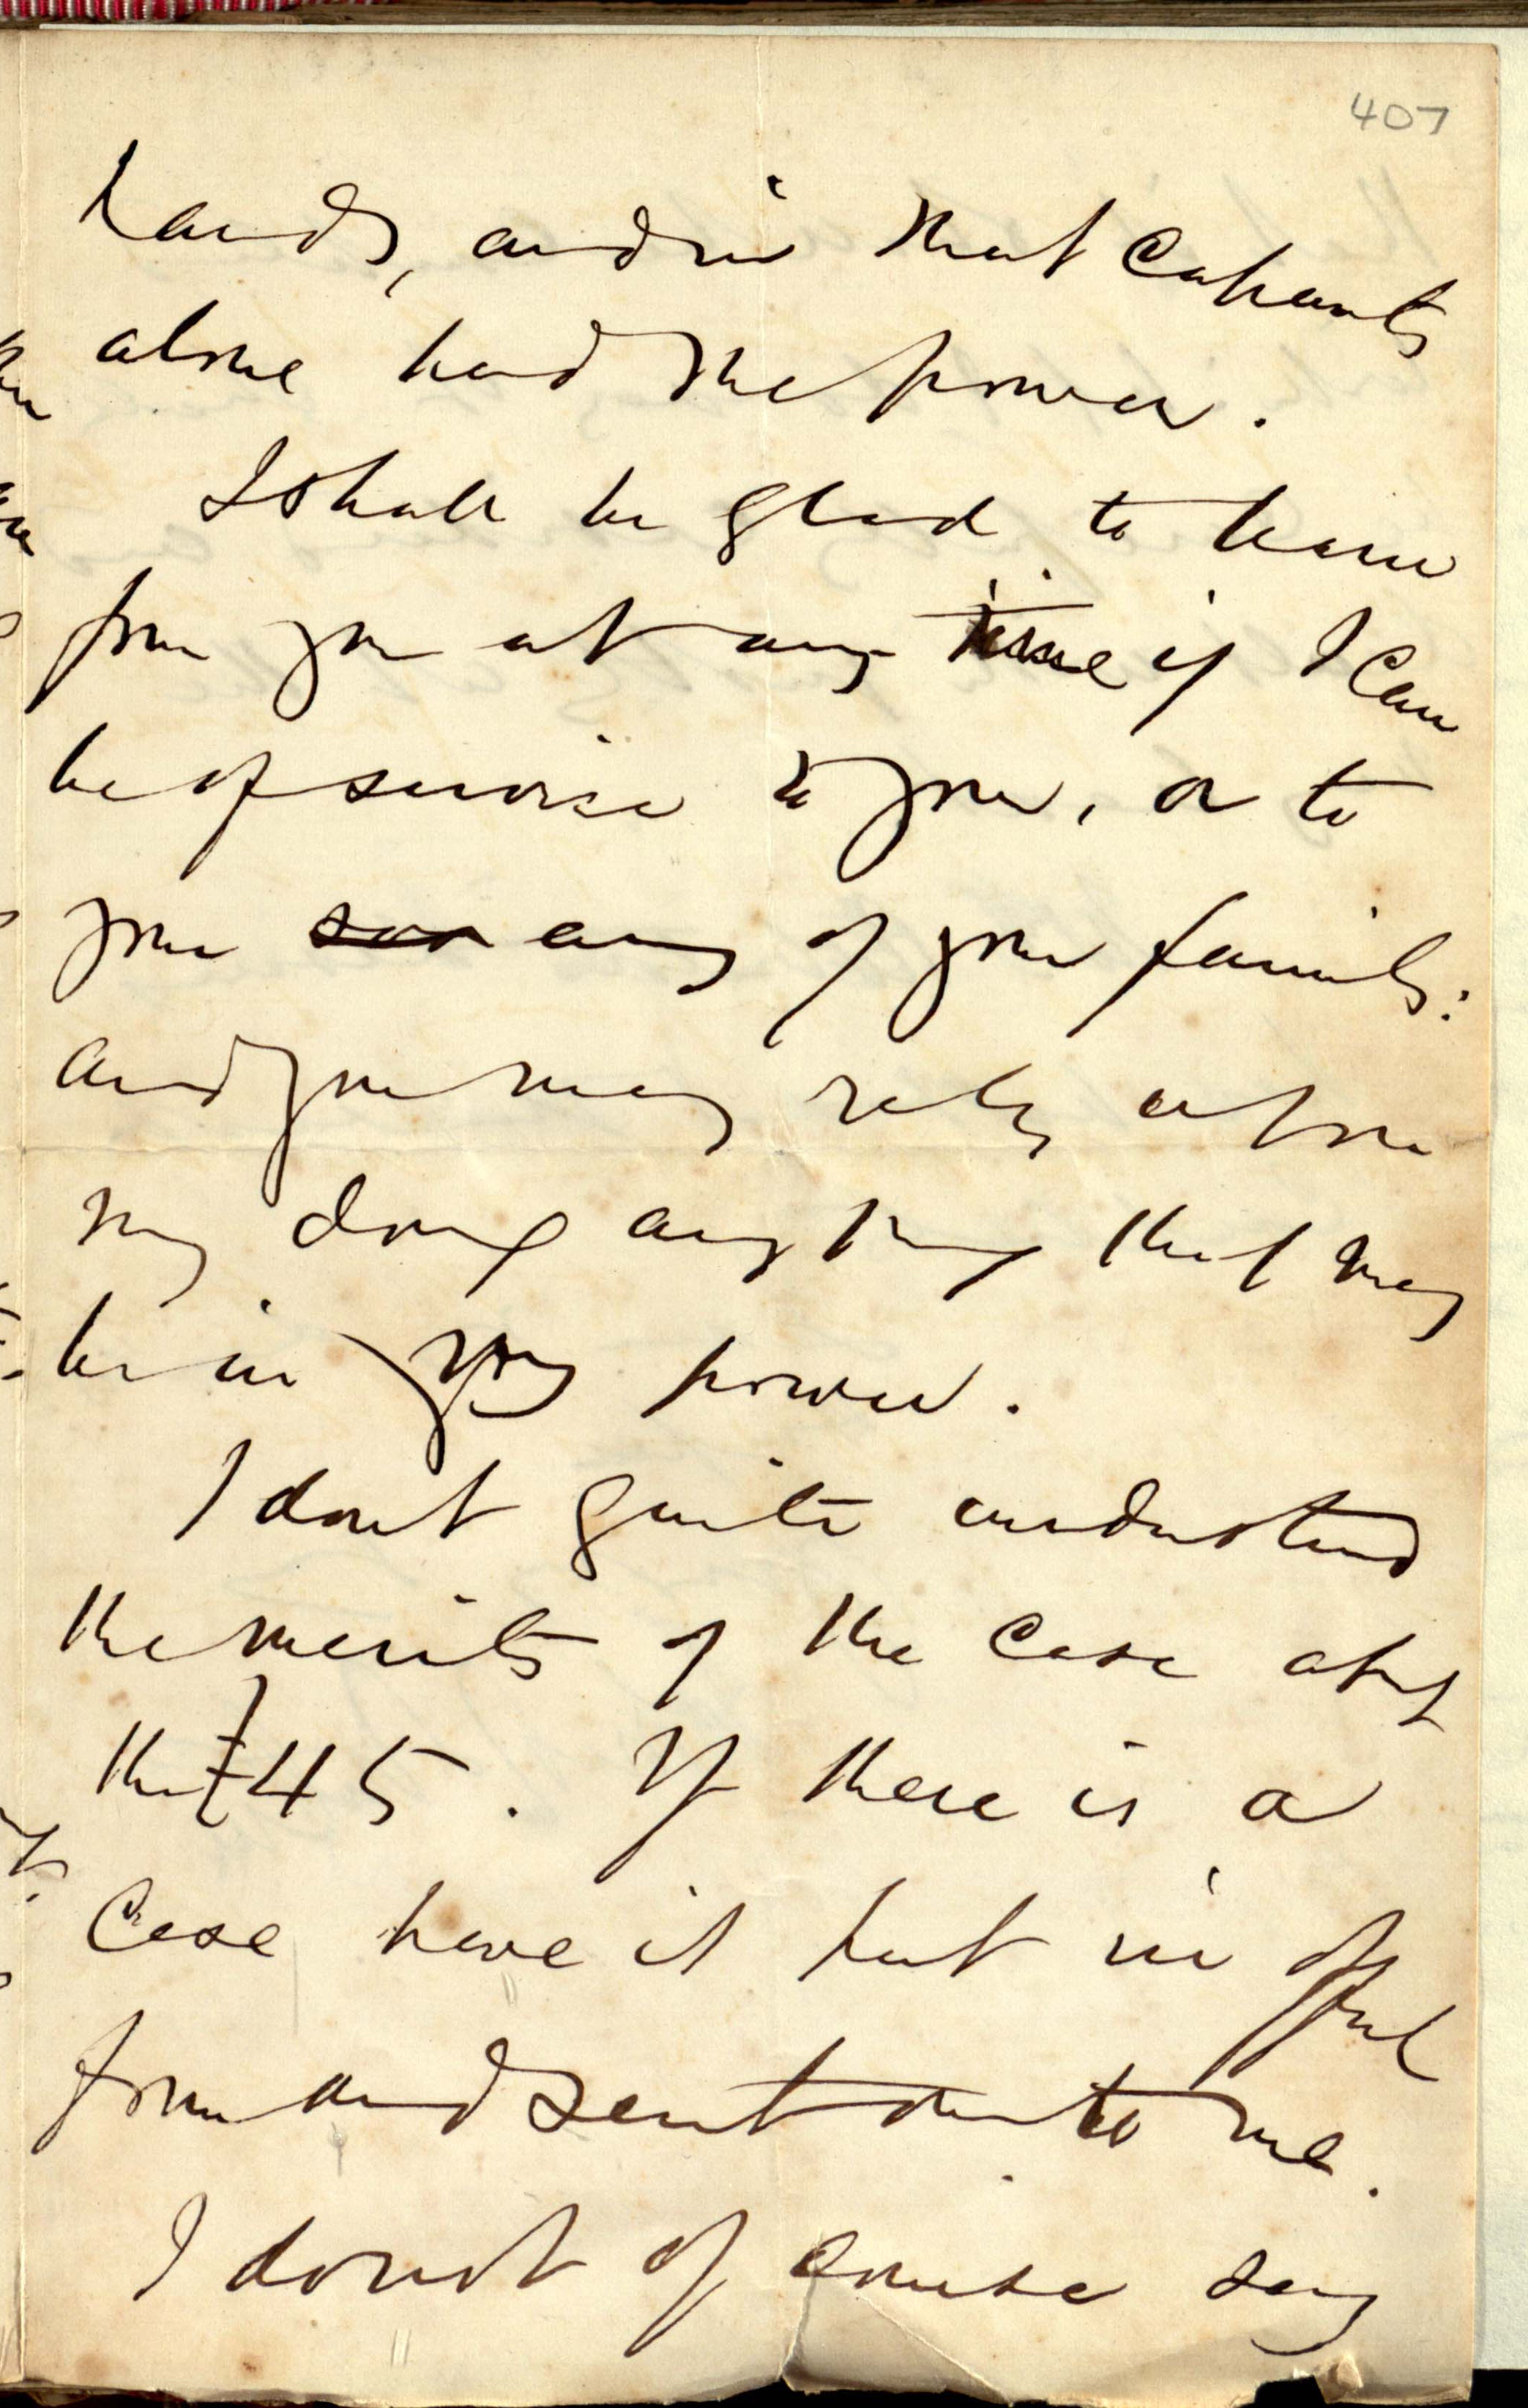 407
hands, and in that Capacity
alone had the power.
I shall be glad to hear
from you at any time if I can
be of service to you, or to
your son any of your family:
and you may rely upon
my doing anything that may
be in my power.
I dont quite understand
the merits of the case abt
the £45. If there is a
Case have it put in offl
form and sent on to me.
I do not of course say